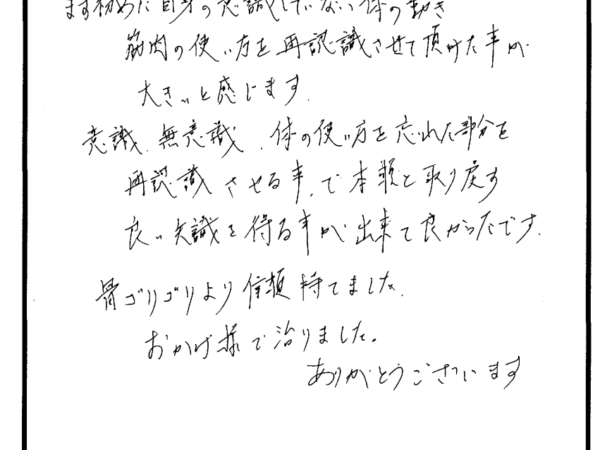 まず初めに自身の意識していない体の動き
筋肉の使い方を再認識させて頂けた事が
大きいと感じます.
意識.無意識.体の使い方を忘れた部分を
再認識させる事.で本類と取り戻す
良い知識を得る事が出来て良かったです.
骨ゴリゴリより信頼持てました.
おかげ様で治りました。
ありがとうございます